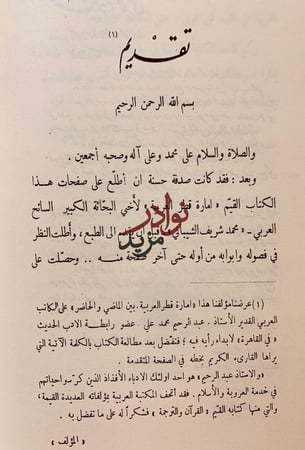 تقديم (١)
بسم الله الرحمن الرحيم
والصلاة والسلام على محمد وعلى آله وصحبه أجمعين .
وبعد : فقد كانت صدفة حسنة ان أطلع على صفحات هذا
الكتاب القيّم « امارة قطر العربية » لأخي البحّاثة الكبير السائح
العربي ـ « محمد شريف الشيباني » إلى الطبع ، وأطلت النظر
في فصوله وابوابه من أوله حتى آخر صفحة منه .. وحصلت على
نوادر
مزيد
(١) عرضنا مؤلفنا هذا « امارة قطر العربية . بين الماضي والحاضر » على الكاتب
العربي القدير الأستاذ . عبد الرحيم محمد علي عضو رابطة الادب الحديث
« في القاهرة » لابداء رأيه فيه ؛ فتفضل بعد مطالعة الكتاب بالكلمة الآتية التي
يراها القارىء الكريم بخطه في الصفحة المتقدمة .
والاستاذ عبد الرحيم » هو احد اولئك الادباء الأفذاذ الذين كرسوا حياتهم
في خدمة العروبة والاسلام . فقد أتحف المكتبة العربية بمؤلفاته العديدة القيمة ،
والتي منها كتابه القيم « القرآن والترجمة » فشكراً له على ما تفضل به .
« المؤلف »